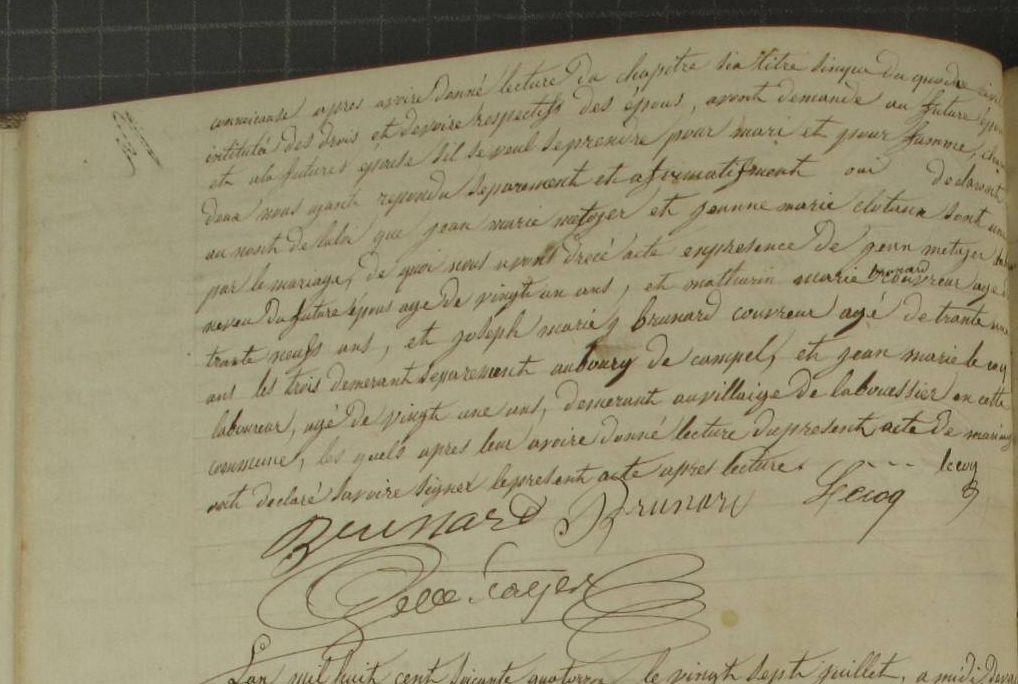 connaisense apres avoire donné lecture du chapitre six titre sinque du quode civil
intitulés des drois et devoire respectifs des épous, avont demande au future épous
et ala future épouse sil se veul se prendre pour mari et pour famme, chaqun
deux nous ayant repondu séparément et afirmatifment oui declaront
au nosm de laloi que jean marie metayer et jeanne marie clotaux sont unis
par le mariage, de quoi nous avont drecé acte enpresence de jean metayer
neveu du future épous age de vingt un ans, et mathurin marie brunard couvreur agé de
trante neufs ans, et joseph marie brunard couvreur agé de trante une
ans les trois demerant séparement aubourg de campel, et jean marie le coq
laboureur, agé de vingt une ans, demerant auvillaige de labouessier en cette
commune, les quels apres leur avoire donné lecture dupresent acte de mariage
ont declaré savoire signer lepresent acte apres lecture. lecoq
Brunard Brunard Lecoq
Metayer
L'an mil huit cent soicante quatorze le vingt sept juillet, a midi devant